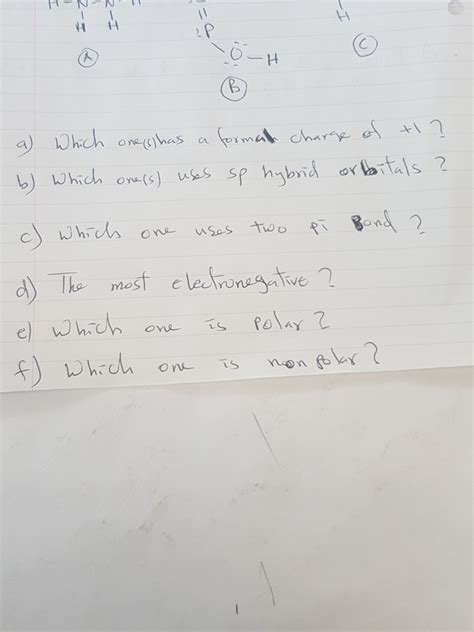 H-N-N-H
H H
P
O-H
H
A
B
C
a) Which one(s) has a formal charge of +1?
b) Which one(s) uses sp hybrid orbitals?
c) Which one uses two pi Bond?
d) The most electronegative?
e) Which one is polar?
f) Which one is non polar?
1